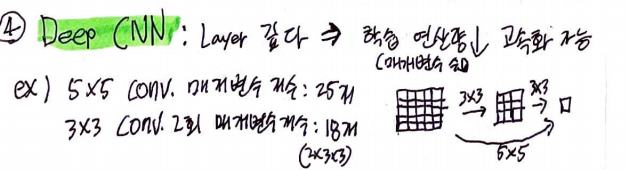 ④ Deep CNN : Layer 깊다 ⇒ 학습 연산량↓ 고속화 가능
(매개변수 수↓)
ex) 5×5 conv. 매개변수 개수 : 25개
3×3 conv. 2회 매개변수 개수 : 18개
(2×3×3)
3×3 3×3
5×5